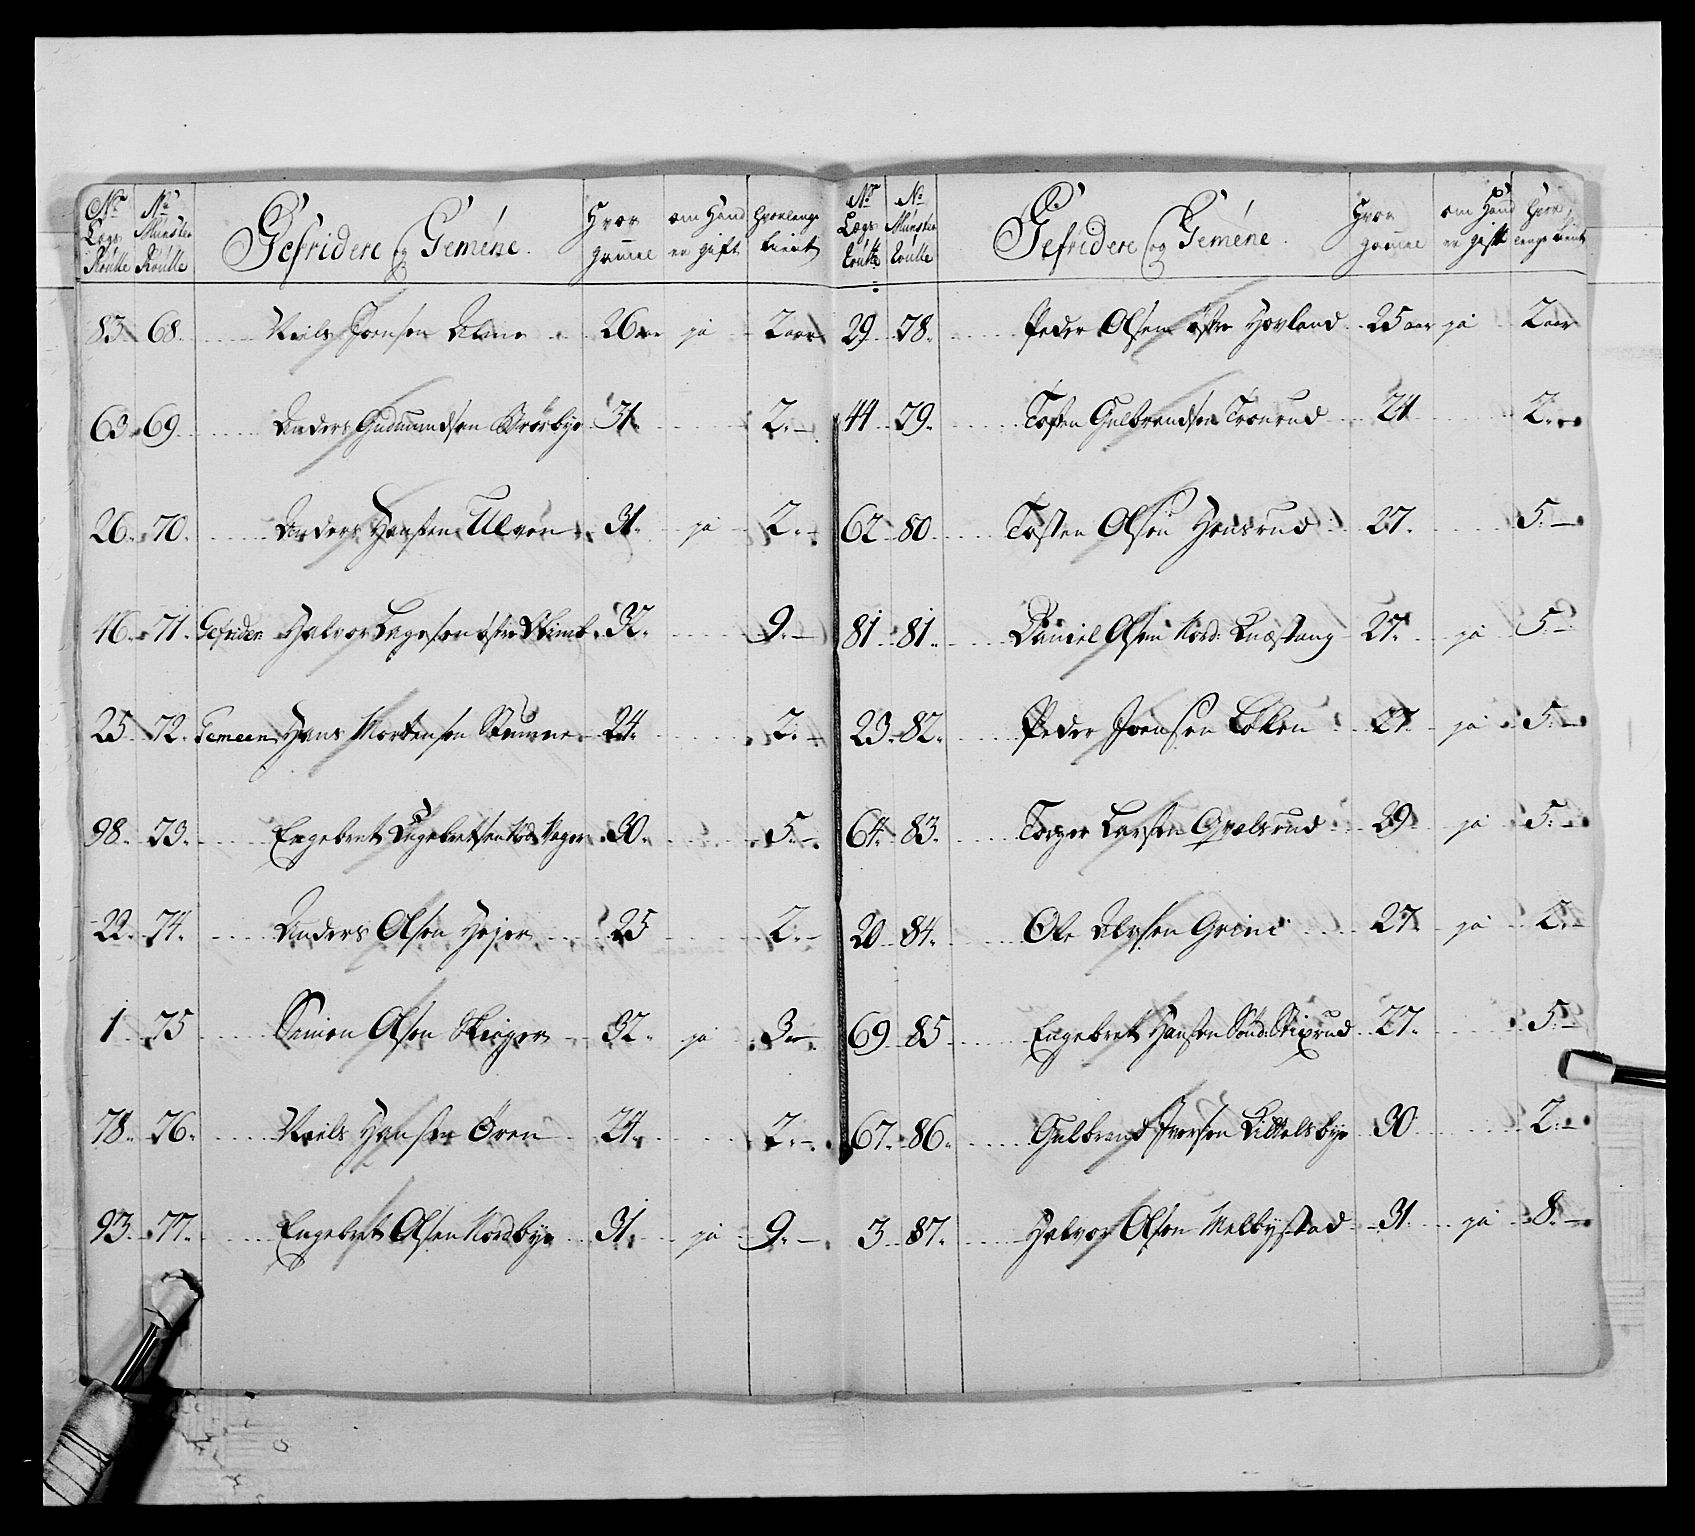 No Lægs Roulle No Munster Roulle Gefridere og Gemene. Hvor gammel om Hand er gift Hvorlenge tient
83. 68. Niels Joensen 26 aar ja 2 aar
63. 69. Anders Gudmundsen 31. 2. –
26. 70. Anders Hansen Ulven 31. ja 2. –
46. 71. Gefrider Halvor østre 32. 9. –
25. 72. Gemeen Hans Mortensen 24. 2. –
98. 73. Engebret Engebretsen 30. 5. –
22. 74. Anders Olsen 25 2. –
1. 75 Simen Olsen 32. ja 3. –
78. 76. Niels Hansen Øren 24. 2. –
93. 77. Engebret Olsen Nordbye 31. ja 9. –
No Lægs Roulle No Munster Roulle Gefridere og Gemene. Hvor gammel om Hand er gift Hvor lenge tient
29. 78. Peder Olsen østre Hovland 25 aar ja 2 aar
44. 79. Tosten Gulbrandsen Tronrud 24 2. –
62. 80. Tosten Olsen Honsrud 27. 5. –
81. 81. Daniel Olsen Nord: Knæstang 27. ja 5. –
23. 82. Peder Joensen Løken 27. ja 5. –
64. 83. Torger Larsen Gvælsrud 29. ja 5. –
20. 84. Ole Olsen Grini 27. ja 2. –
69. 85. Engebret Hansen Sønd: Stixrud 27. 5. –
67. 86. Gulbrand Iversen Kittelsbye 30 2. –
3. 87. Halvor Olsen Melbystad 31. ja 8. –